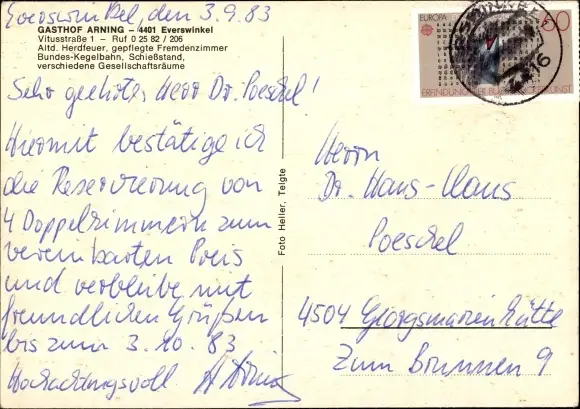 Everswinkel, den 3.9.83
GASTHOF ARNING – 4401 Everswinkel
Vitusstraße 1 – Ruf 0 25 82 / 206
Altd. Herdfeuer, gepflegte Fremdenzimmer
Bundes-Kegelbahn, Schießstand,
verschiedene Gesellschaftsräume
Sehr geehrter Herr Dr. Poeschel!
Hiermit bestätige ich
die Reservierung von
4 Doppelzimmern zum
vereinbarten Preis
und verbleibe mit
freundlichen Grüßen
bis zum 3.10.83
Hochachtungsvoll
Foto Heller, Telgte
EUROPA
50
Herrn
Dr. Hans-Klaus
Poeschel
4504 Georgsmarienhütte
Zum Brunnen 9